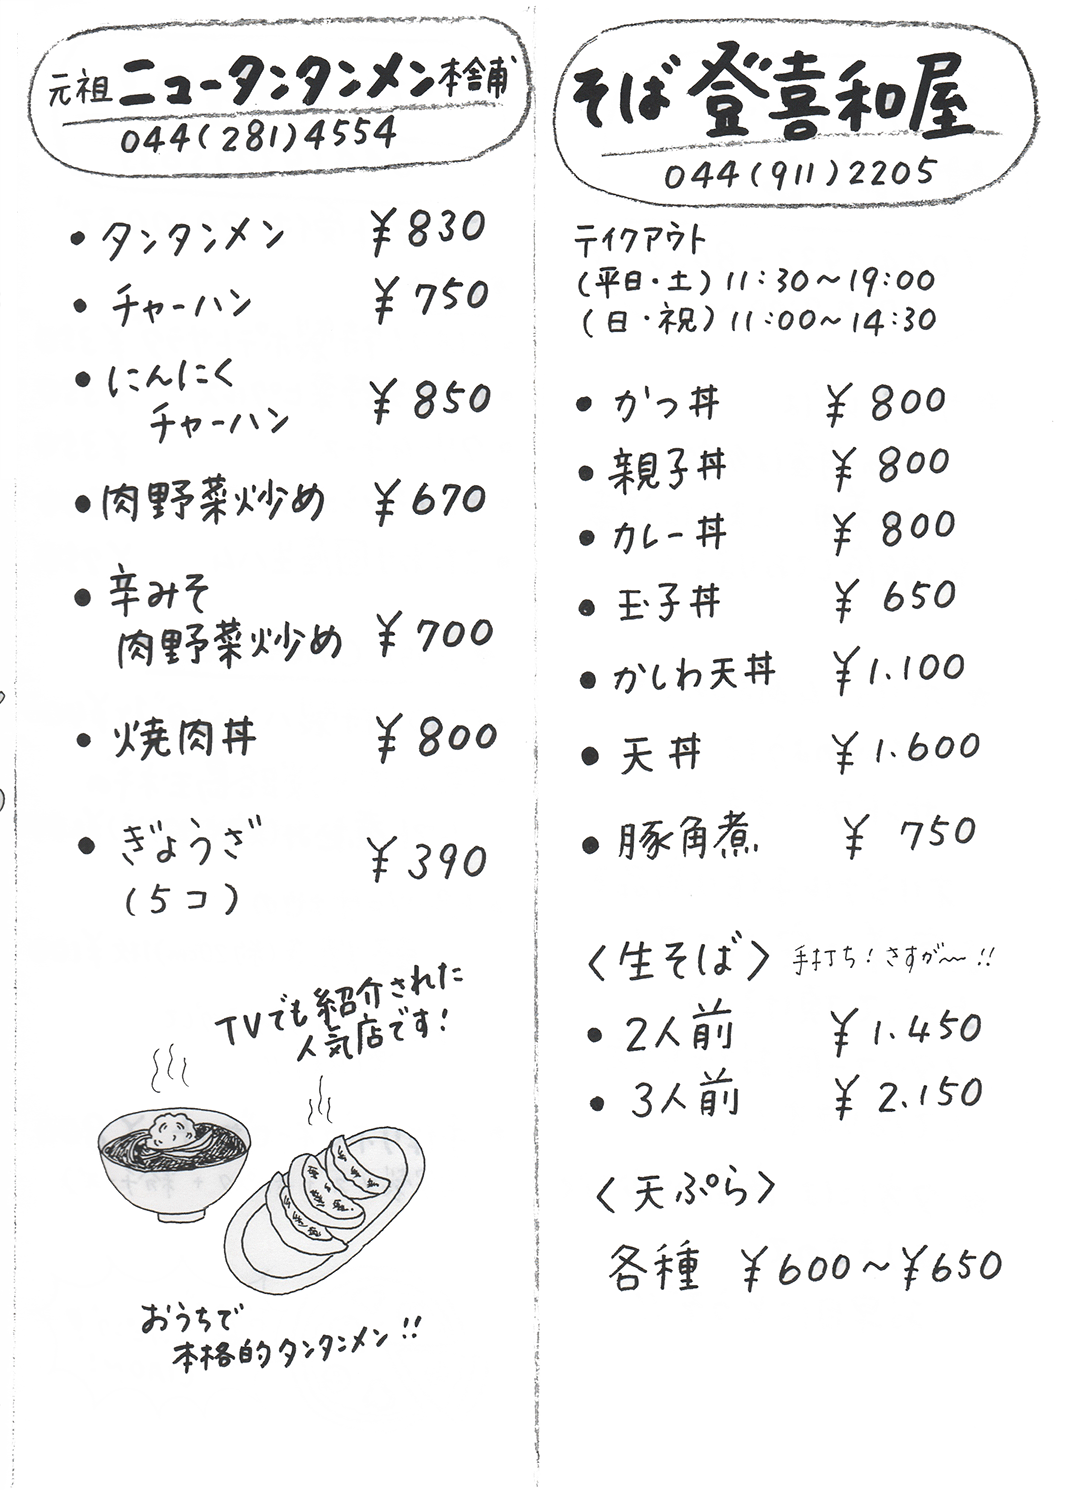 元祖ニュータンタンメン本舗
044(281)4554
・タンタンメン ¥830
・チャーハン ¥750
・にんにく
チャーハン ¥850
・肉野菜炒め ¥670
・辛みそ
肉野菜炒め ¥700
・焼肉丼 ¥800
・ぎょうざ
(5コ) ¥390
TVでも紹介された
人気店です!
おうちで
本格的タンタンメン!!
そば 登喜和屋
044(911)2205
テイクアウト
(平日・土) 11:30〜19:00
(日・祝) 11:00〜14:30
・かつ丼 ¥800
・親子丼 ¥800
・カレー丼 ¥800
・玉子丼 ¥650
・かしわ天丼 ¥1.100
・天丼 ¥1.600
・豚角煮 ¥750
〈生そば〉手打ち!さすが〜!!
・2人前 ¥1.450
・3人前 ¥2.150
〈天ぷら〉
各種 ¥600〜¥650